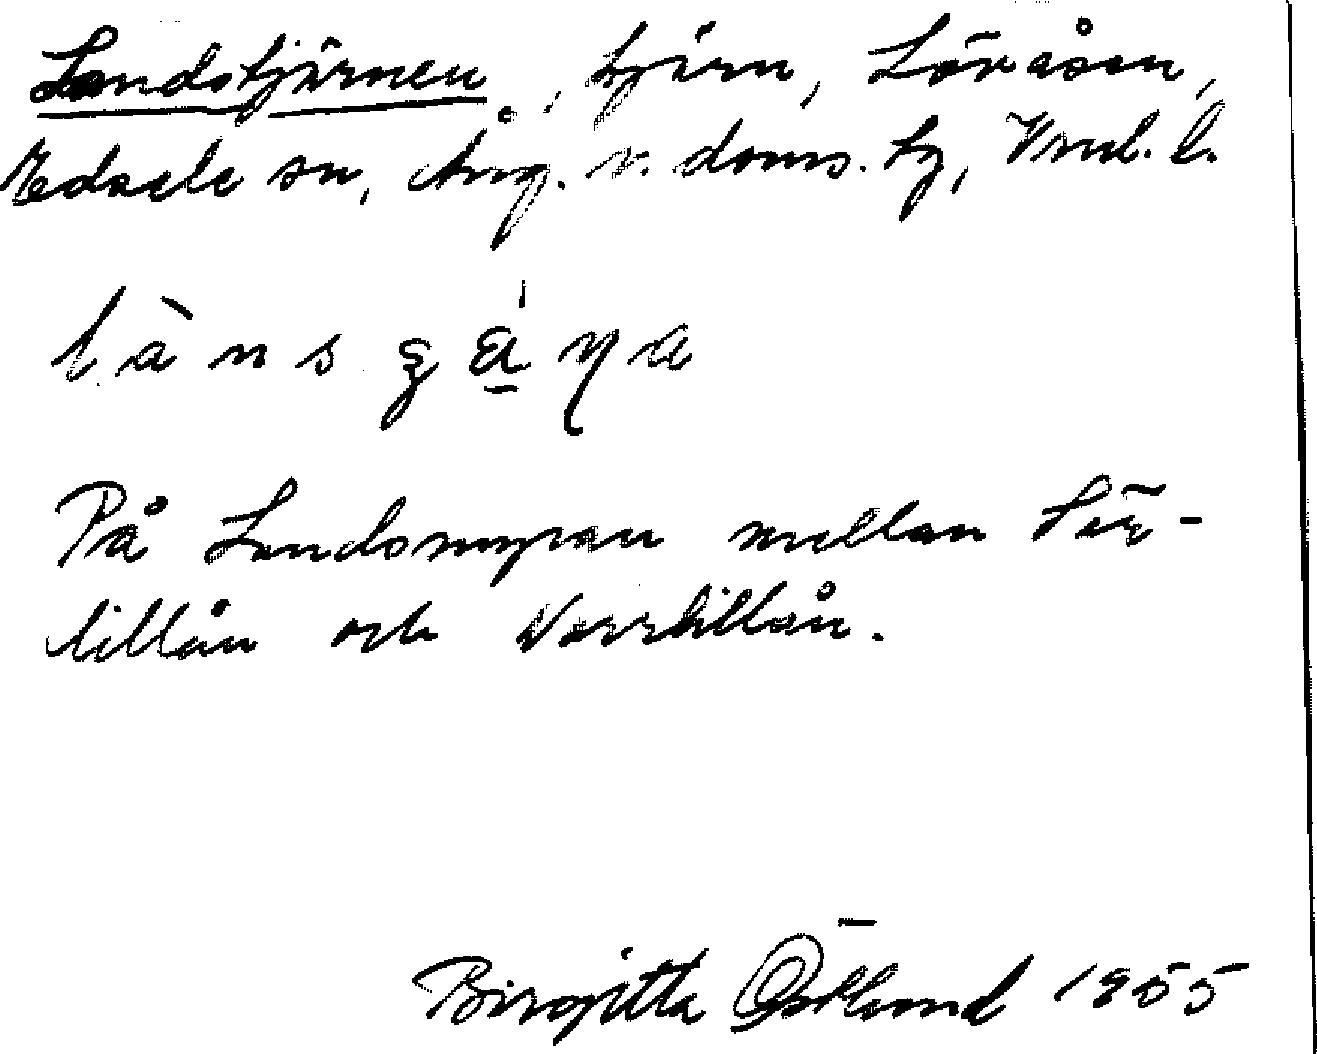 Landstjärnen, tjärn, Lövåsen,
Edsele sn, Ång. v. doms. tg, Vnl. l.
På Landsmyran mellan Sör-
lillån och Norrlillån.
Birgitta Östlund 1955